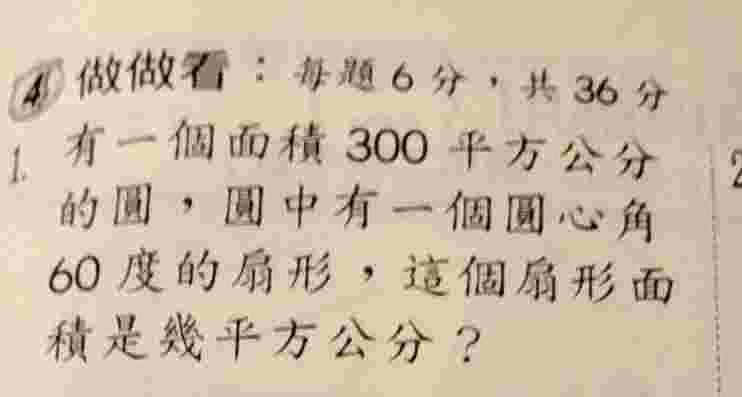 4 做做看：每題6分，共36分
1. 有一個面積300平方公分
的圓，圓中有一個圓心角
60度的扇形，這個扇形面
積是幾平方公分？
2